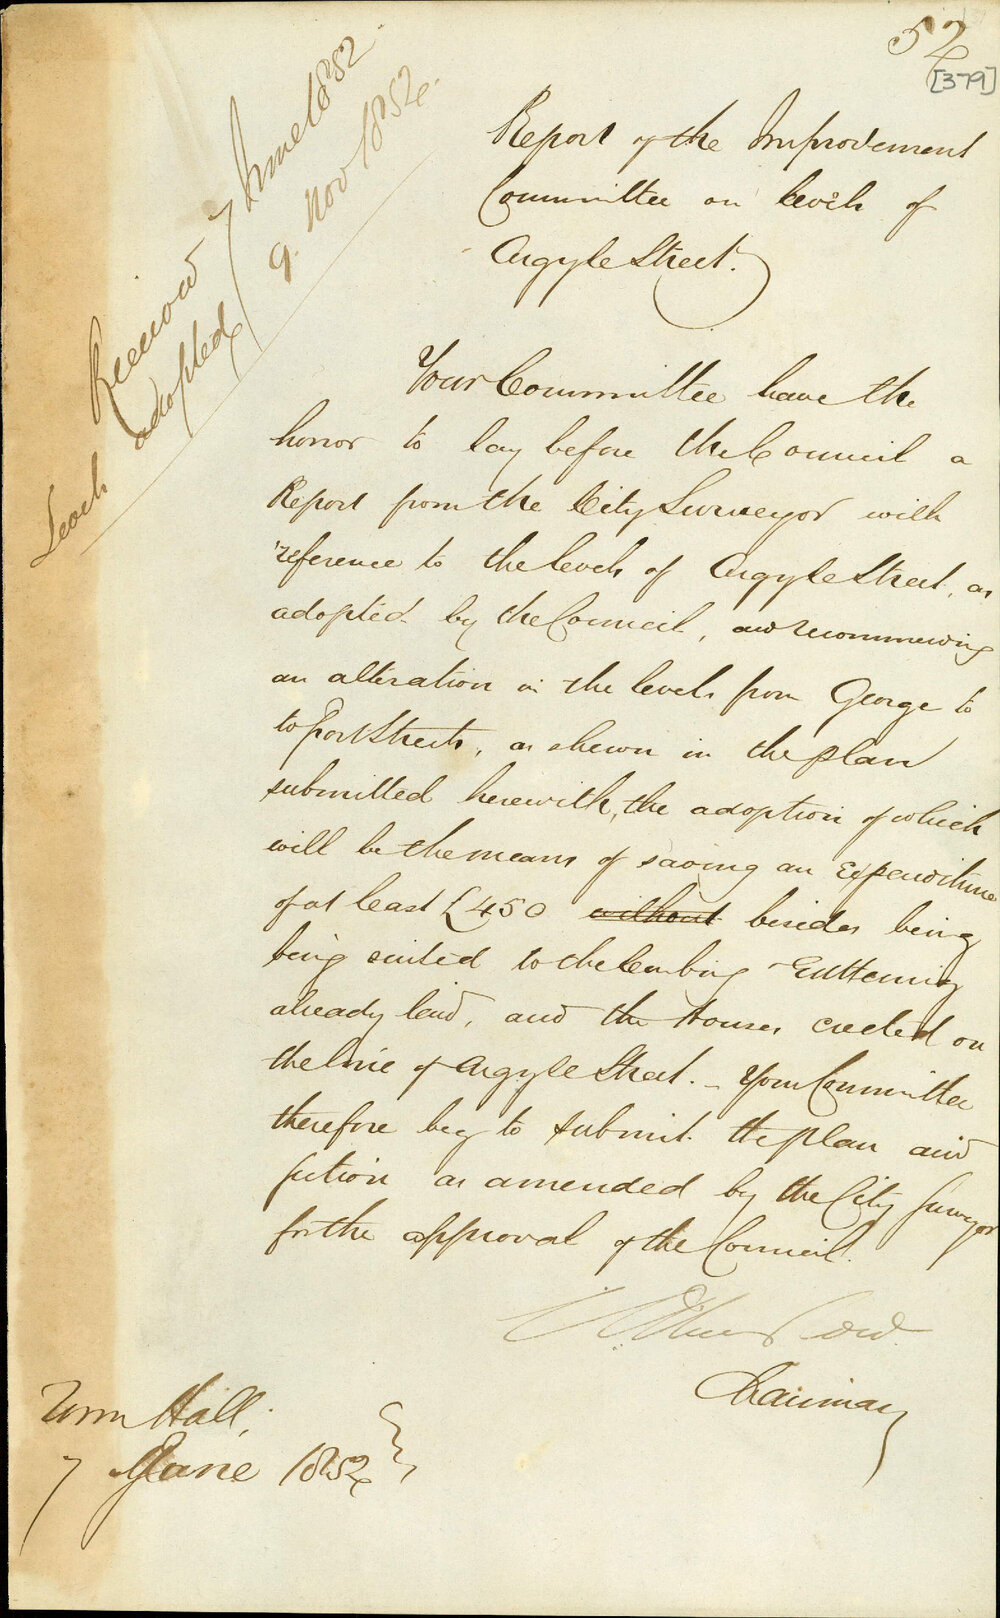 52
[379]
Report of the Improvement
Committee on levels of
Argyle Street.
Received 7 June 1852
adopted 9. Nov 1852.
Your Committee have the
honor to lay before the Council a
Report from the City Surveyor with
reference to the levels of Argyle Street, as
adopted by the Council, and recommending
an alteration in the levels from George to
to Fort Streets, as shewn in the plan
submitted herewith, the adoption of which
will be the means of saving an Expenditure
of at least £450 without besides being
being suited to the Curbing Guttering
already laid, and the Houses erected on
the line of Argyle Street. _ Your Committee
therefore beg to submit the plan and
section as amended by the City Surveyor
for the approval of the Council.
Chairman
Town Hall,
7 June 1852